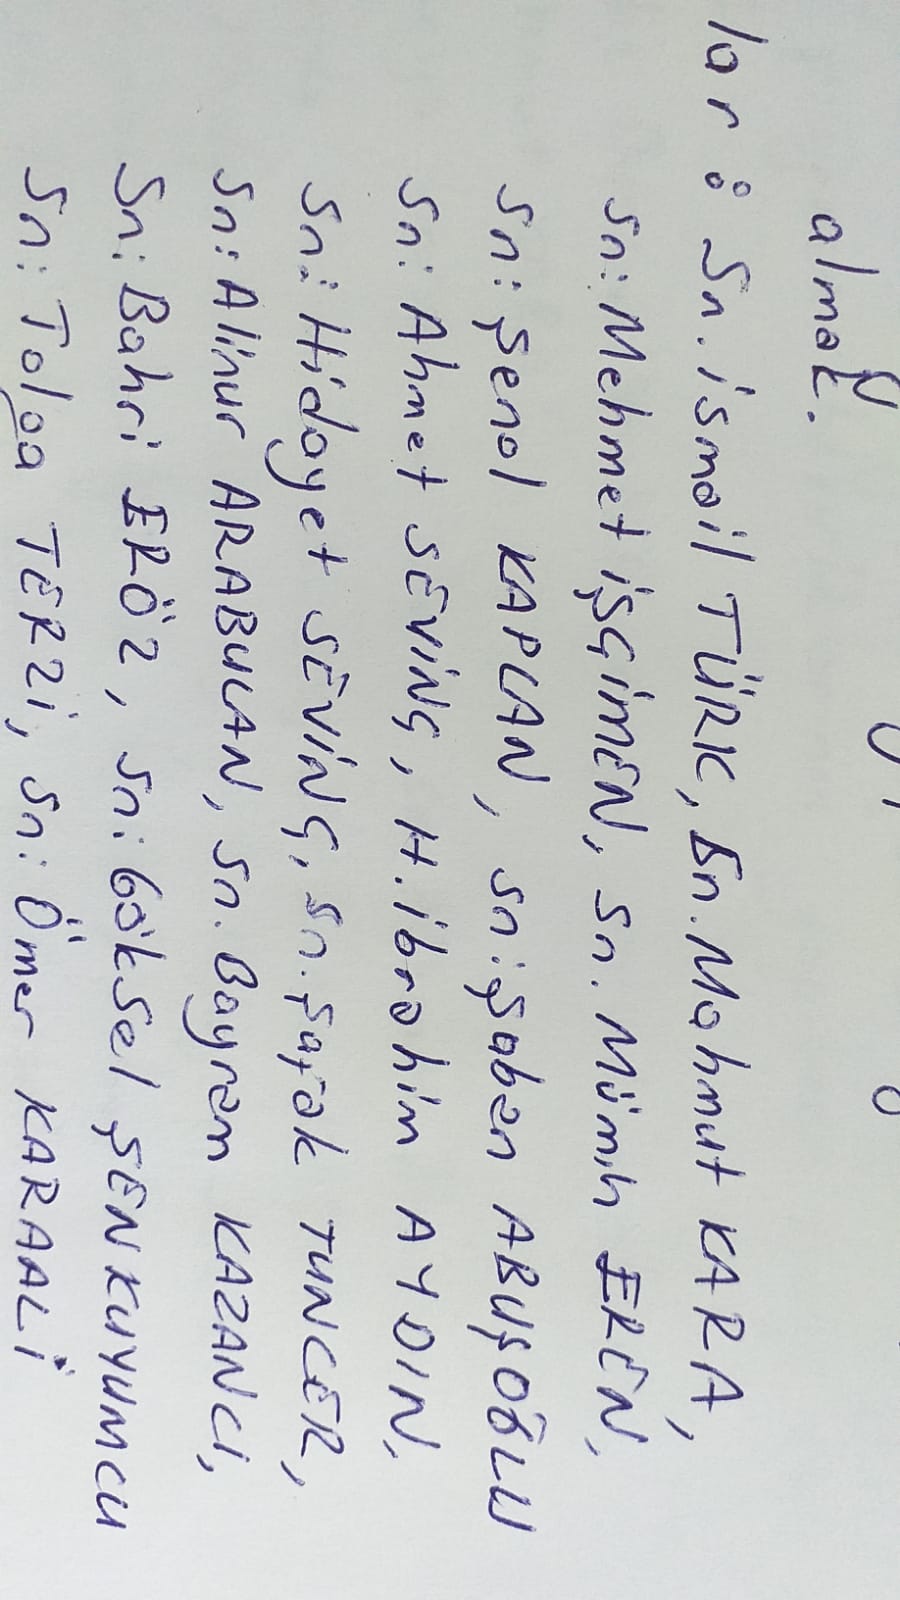 almak.
lar : Sn. ismail TÜRK, Sn. Mahmut KARA,
Sn: Mehmet işçiMEN, Sn. Mümin EREN,
Sn: Şenol KAPLAN, Sn: Şaban ABUŞOĞLU
Sn: Ahmet SEVİNÇ, H. ibrahim AYDIN,
Sn: Hidayet SEVİNÇ, Sn. Şafak TUNCER,
Sn: Alinur ARABULAN, Sn. Bayram KAZANCI,
Sn: Bahri ERÖZ, Sn: Göksel ŞENKUYUMCU
Sn: Tolga TERZİ, Sn: Ömer KARAALİ